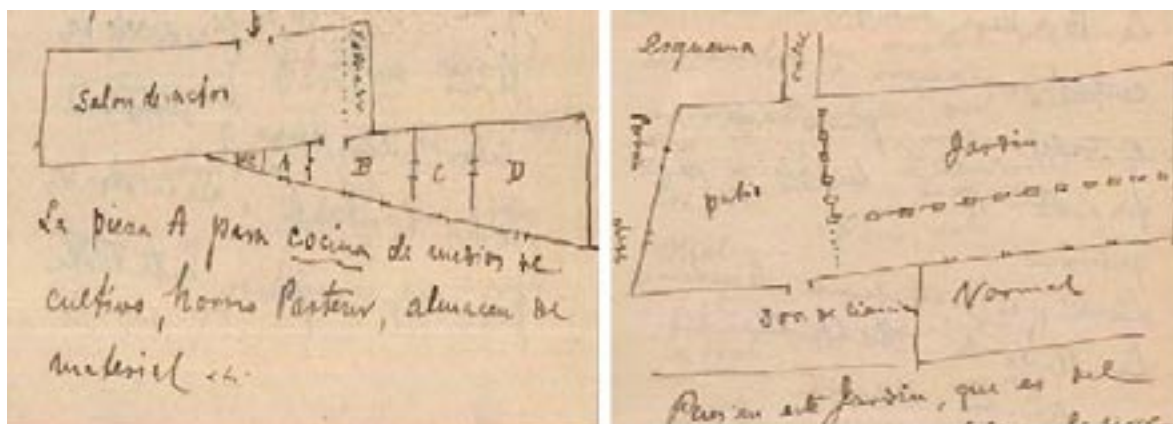 Salon de actos
A
B
C
D
La pieza A para cocina de medios de
cultivo, horno Pasteur, almacen de
material
Esquema
patio
Jardin
Normal
Pues en este Jardin, que es del